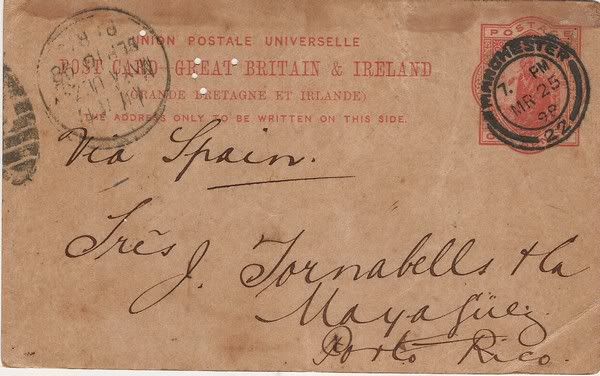 UNION POSTALE UNIVERSELLE
POST CARD - GREAT BRITAIN & IRELAND
(GRANDE BRETAGNE ET IRLANDE)
THE ADDRESS ONLY TO BE WRITTEN ON THIS SIDE.
POSTAGE
MANCHESTER
7. PM
MR 25
98
22
Via Spain.
Srẽs J. Tornabells & Ca
Mayagüez
Porto Rico.